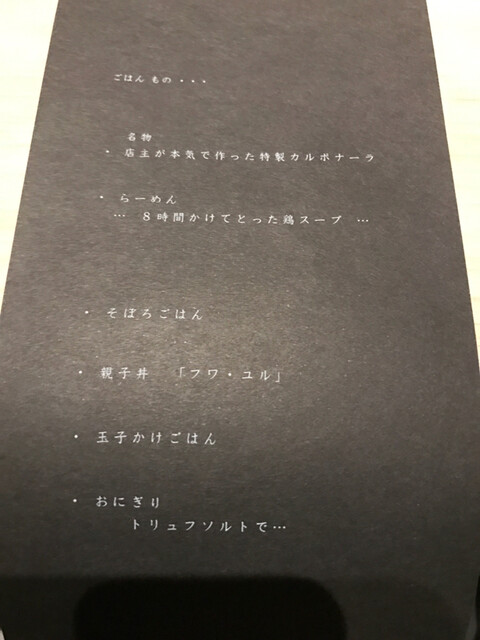 ごはんもの・・・
名物
・店主が本気で作った特製カルボナーラ
・らーめん
… 8時間かけてとった鶏スープ …
・そぼろごはん
・親子丼 「フワ・ユル」
・玉子かけごはん
・おにぎり
トリュフソルトで…